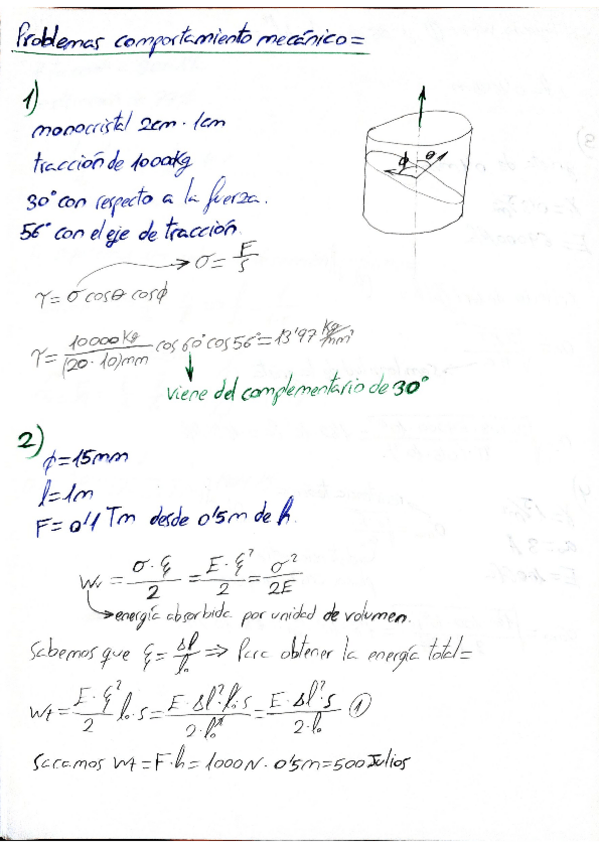 Problemas comportamiento mecánico=
1)
monocristal 2cm · 1cm
tracción de 1000kg
30° con respecto a la fuerza.
56° con el eje de tracción.
σ = F/S
τ = σ cosθ cosϕ
ϕ θ
τ = 10000 Kg / (20·10)mm cos 60° cos 56° = 13'97 kg/mm²
viene del complementario de 30°
2)
ϕ = 15mm
l = 1m
F = 0'1 Tm desde 0'5m de h.
Wv = σ·ξ/2 = E·ξ²/2 = σ²/2E
energía absorbida por unidad de volumen.
Sabemos que ξ = Δl/l₀ ⇒ Para obtener la energía total=
Wt = E·ξ²/2 l₀·s = E·Δl²·l₀·s/2·l₀² = E·Δl²·s/2·l₀ ①
Sacamos Wt = F·h = 1000N · 0'5m = 500 Julios